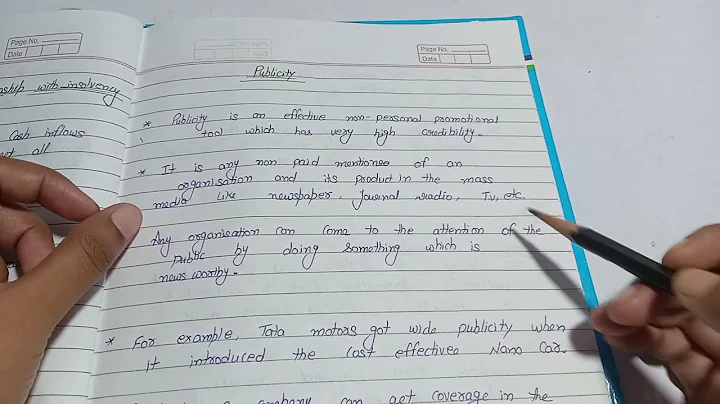 Page No.
Date
nship with insolvency
Cash inflows
all
Page No.
Date
Publicity
* Publicity is an effective non-personal promotional
tool which has very high credibility.
* It is any non paid mentionee of an
organisation and its product in the mass
media like newspaper, Journal radio, Tv, etc.
Any organisation can come to the attention of the
Public by doing something which is
news worthy.
* For example, Tata motors got wide publicity when
it introduced the cost effectivee Nano Car.
company can get coverage in the